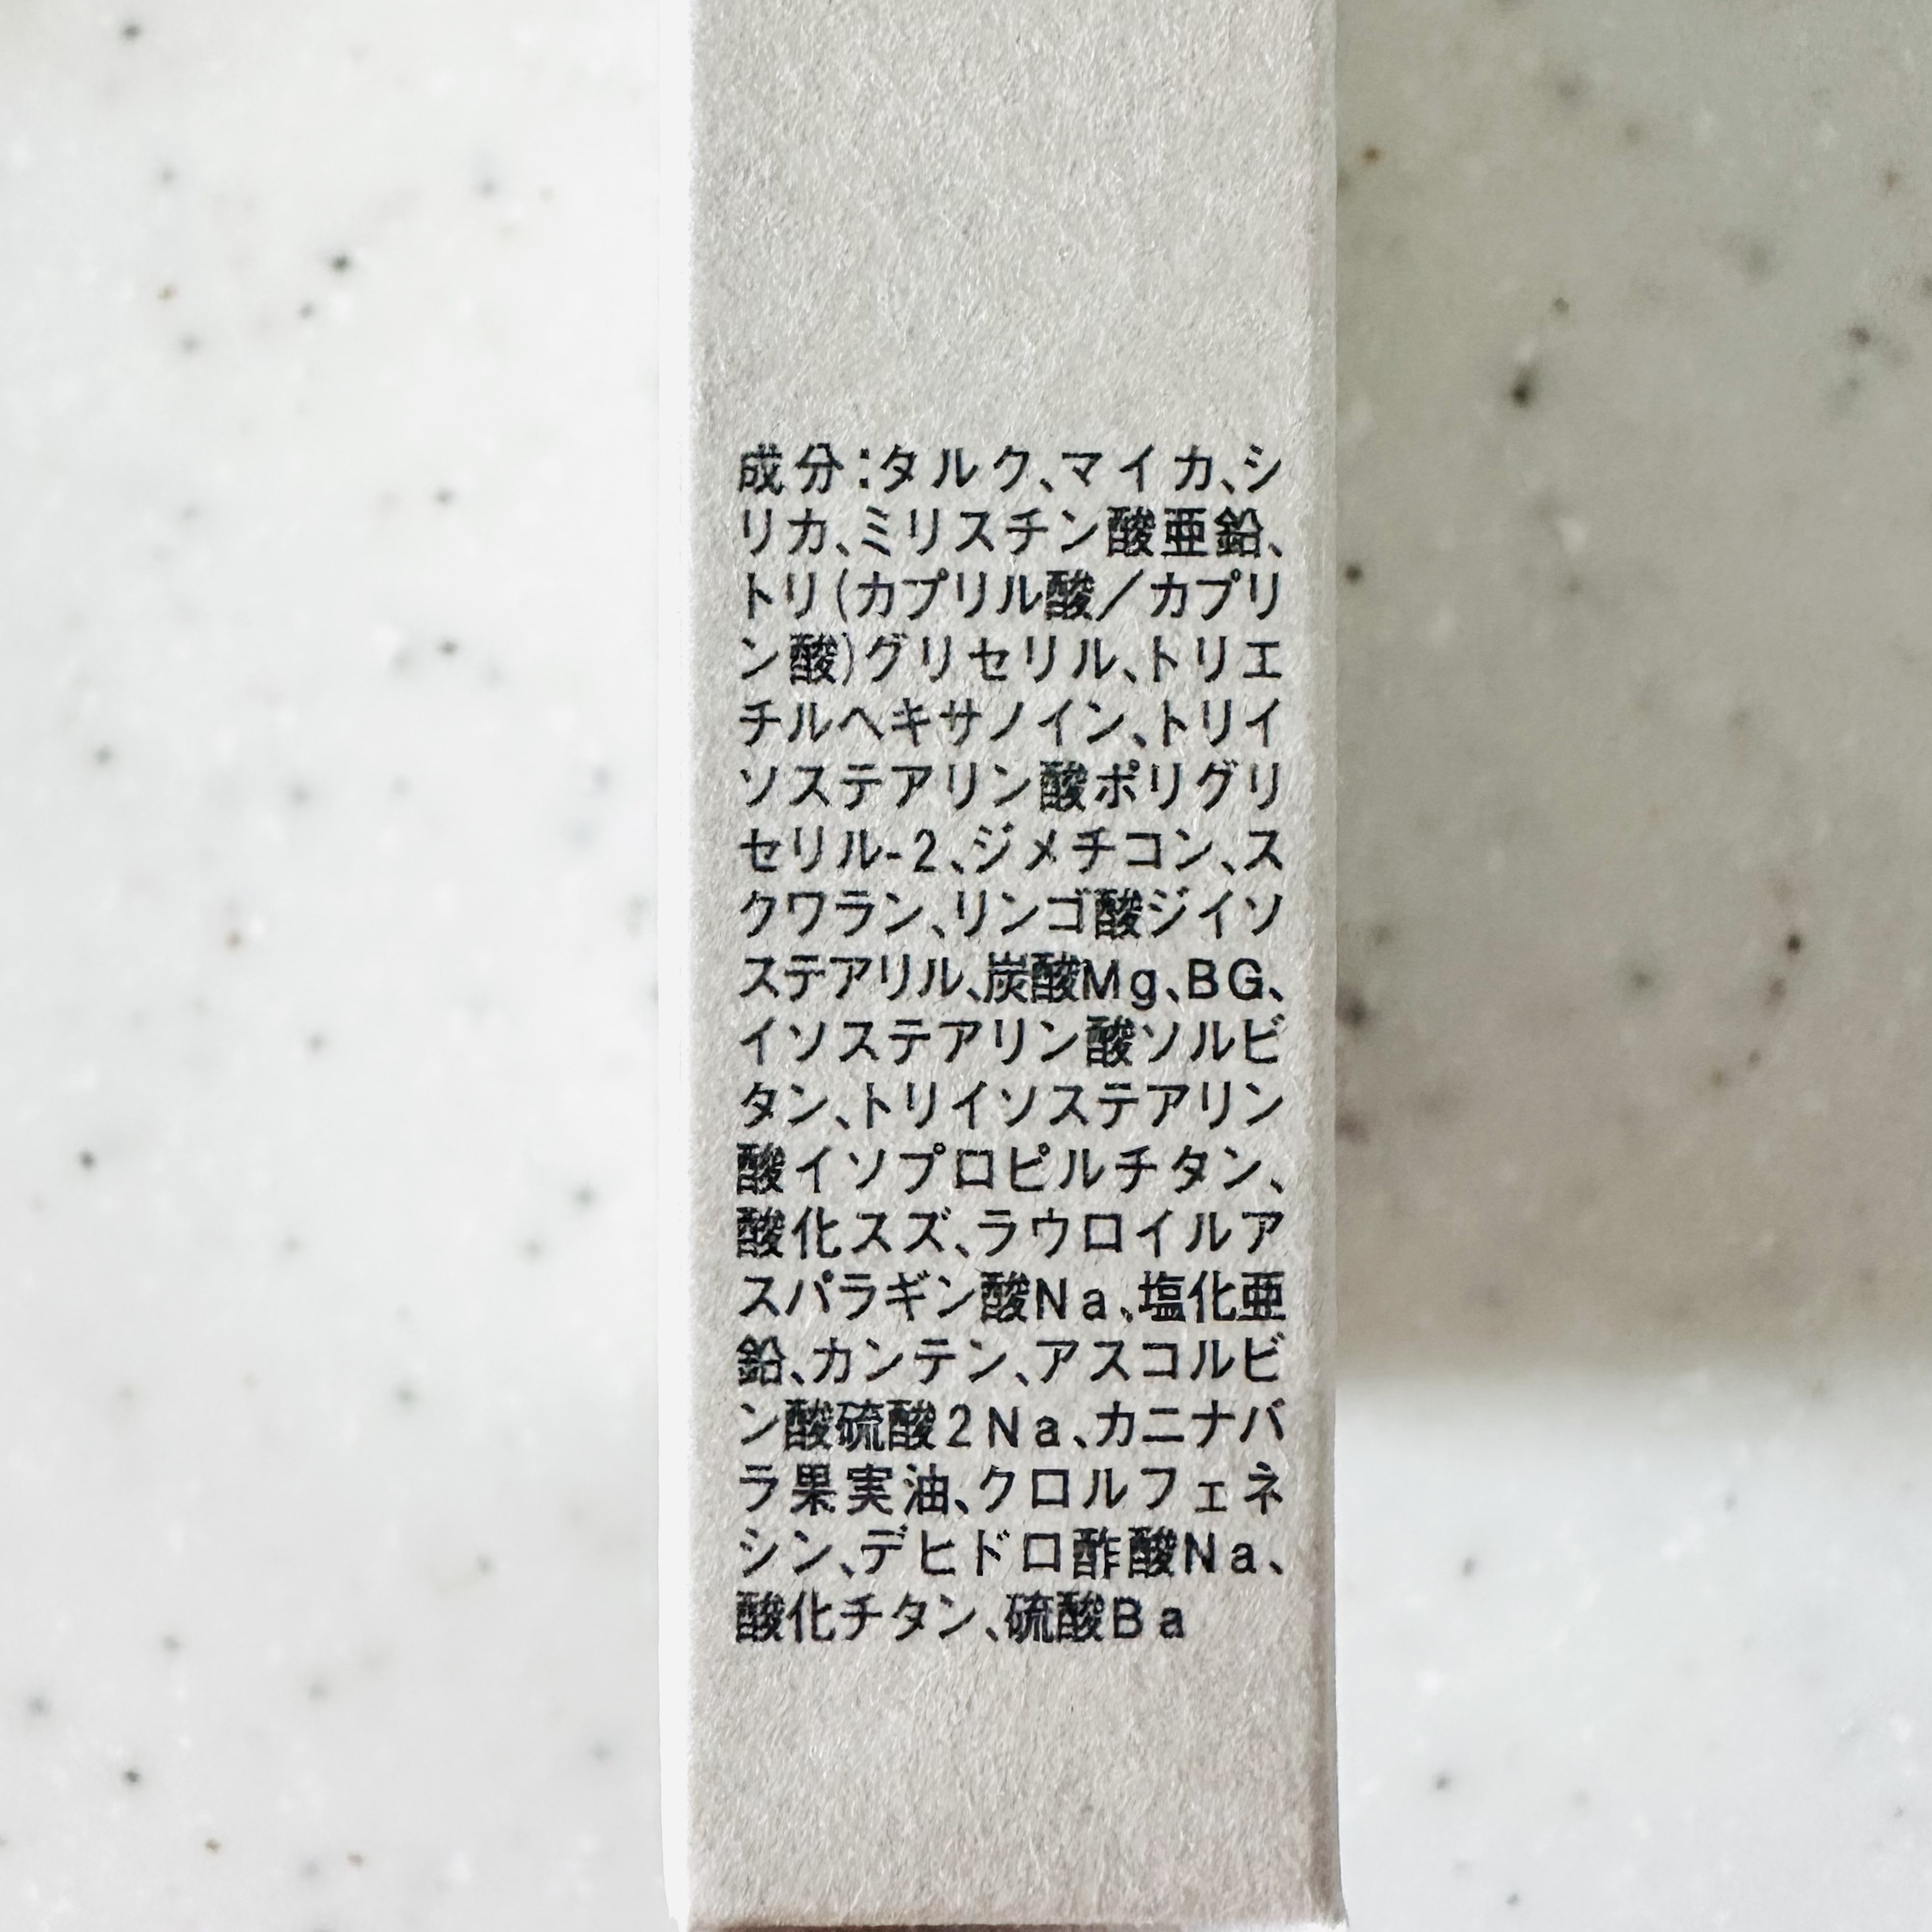 成分:タルク、マイカ、シ
リカ、ミリスチン酸亜鉛、
トリ(カプリル酸／カプリ
ン酸)グリセリル、トリエ
チルヘキサノイン、トリイ
ソステアリン酸ポリグリ
セリル-2、ジメチコン、ス
クワラン、リンゴ酸ジイソ
ステアリル、炭酸Mg、BG、
イソステアリン酸ソルビ
タン、トリイソステアリン
酸イソプロピルチタン、
酸化スズ、ラウロイルア
スパラギン酸Na、塩化亜
鉛、カンテン、アスコルビ
ン酸硫酸2Na、カニナバ
ラ果実油、クロルフェネ
シン、デヒドロ酢酸Na、
酸化チタン、硫酸Ba